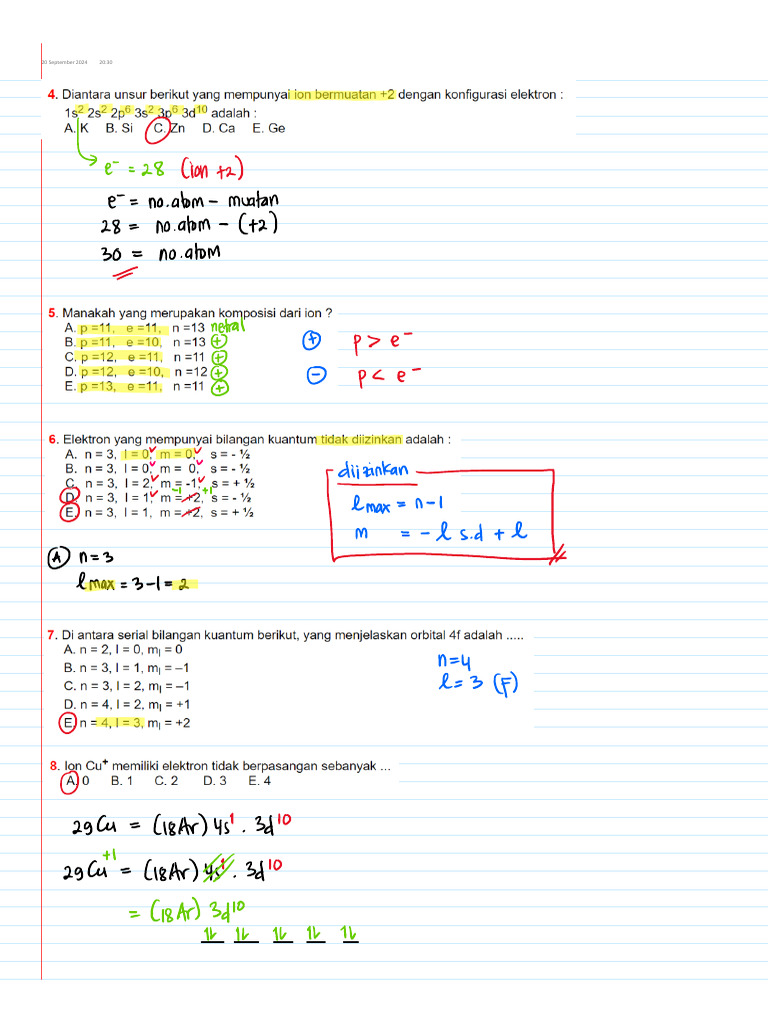 20 September 2024 20:30
4. Diantara unsur berikut yang mempunyai ion bermuatan +2 dengan konfigurasi elektron :
1s² 2s² 2p⁶ 3s² 3p⁶ 3d¹⁰ adalah :
A. K B. Si C. Zn D. Ca E. Ge
e⁻ = 28 (ion +2)
e⁻ = no.atom – muatan
28 = no.atom – (+2)
30 = no.atom
5. Manakah yang merupakan komposisi dari ion ?
A. p =11, e =11, n =13 netral
B. p =11, e =10, n =13 +
C. p =12, e =11, n =11 +
D. p =12, e =10, n =12 +
E. p =13, e =11, n =11 +
+ p > e⁻
− p < e⁻
6. Elektron yang mempunyai bilangan kuantum tidak diizinkan adalah :
A. n = 3, l = 0, m = 0, s = - ½
B. n = 3, l = 0, m = 0, s = - ½
C. n = 3, l = 2, m = -1, s = + ½
-1 +1
D. n = 3, l = 1, m = +2, s = - ½
E. n = 3, l = 1, m = +2, s = + ½
diizinkan
l max = n-1
m = -l s.d +l
A n=3
l max = 3-1 = 2
7. Di antara serial bilangan kuantum berikut, yang menjelaskan orbital 4f adalah .....
A. n = 2, l = 0, mₗ = 0
B. n = 3, l = 1, mₗ = –1
C. n = 3, l = 2, mₗ = –1
D. n = 4, l = 2, mₗ = +1
E. n = 4, l = 3, mₗ = +2
n=4
l= 3 (F)
8. Ion Cu⁺ memiliki elektron tidak berpasangan sebanyak ...
A. 0 B. 1 C. 2 D. 3 E. 4
29Cu = (18Ar) 4s¹ . 3d¹⁰
29Cu⁺¹ = (18Ar) 4s¹ . 3d¹⁰
= (18Ar) 3d¹⁰
⥮ ⥮ ⥮ ⥮ ⥮